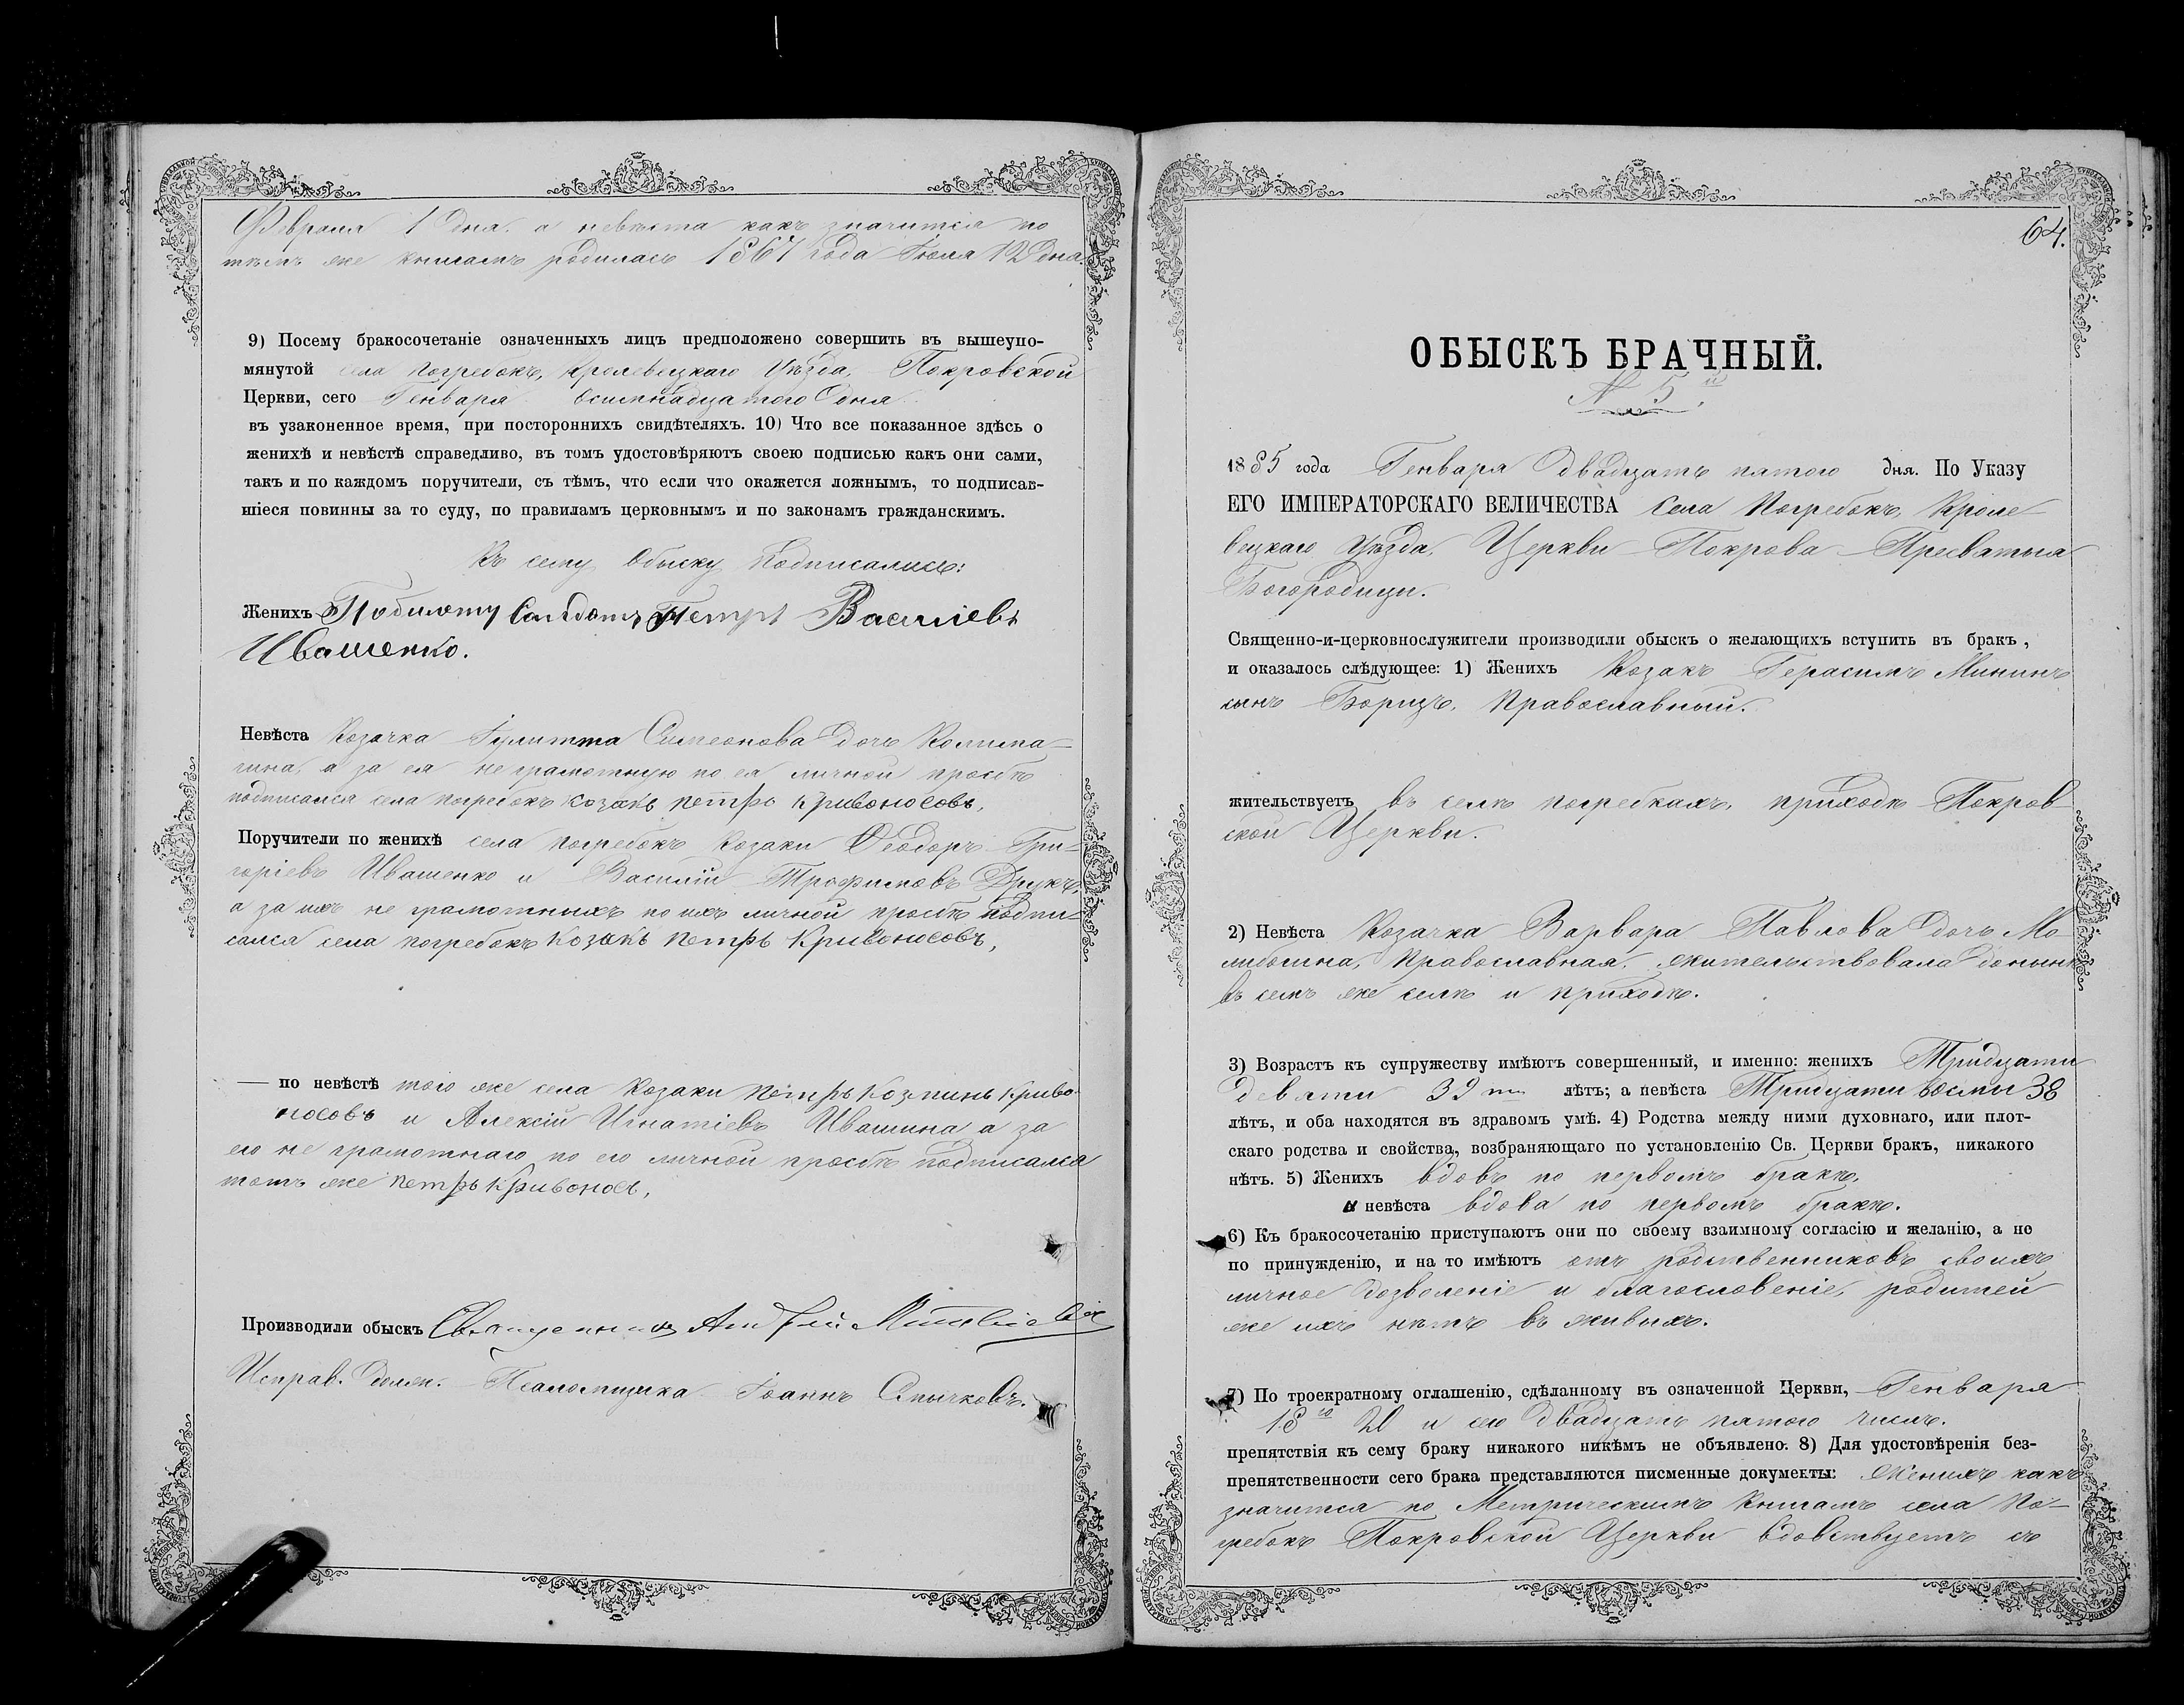 Февраля 1 дня. а невѣста какъ значится по
тѣмъ же книгамъ родилась 1867 года Іюля 12 дня.
9) Посему бракосочетаніе означенныхъ лицъ предположено совершить въ вышеупо-
мянутой села Погребокъ, Кролевецкаго Уѣзда, Покровской
Церкви, сего Генваря восимнадцатого дня
въ узаконенное время, при постороннихъ свидѣтеляхъ. 10) Что все показанное здѣсь о
женихѣ и невѣстѣ справедливо, въ томъ удостовѣряютъ своею подписью какъ они сами,
такъ и по каждомъ поручители, съ тѣмъ, что если что окажется ложнымъ, то подписав-
шіеся повинны за то суду, по правиламъ церковнымъ и по законамъ гражданскимъ.
Къ сему обыску подписались:
Женихъ Побилету Солдатъ Петръ Василіевъ
Ивашенко.
Невѣста Козачка Іулитта Симеонова дочь
а за ея не грамотную по ея личной просьбѣ
подписался села Погребокъ козакъ Петръ Кривоносовъ,
Поручители по женихѣ села Погребокъ Козаки Ѳеодоръ Гри-
горіевъ Ивашенко и Василій Трофимовъ Друкъ,
а за ихъ не грамотныхъ по ихъ личной просьбѣ подпи-
сался села Погребокъ козакъ Петръ Кривоносовъ,
— по невѣстѣ того же села Козаки Петръ Козминъ Криво-
носовъ и Алексій Игнатіевъ Ивашина а за
его не грамотнаго по его личной просьбѣ подписался
тотъ же Петръ Кривонос,
Производили обыскъ Священникъ Андрей
Исправ. долж. Псаломщика Іоаннъ Смычковъ.
64.
ОБЫСКЪ БРАЧНЫЙ.
N 5й.
1885 года Генваря двадцать пятого дня. По Указу
ЕГО ИМПЕРАТОРСКАГО ВЕЛИЧЕСТВА Села Погребокъ, Кроле-
вецкаго Уѣзда, Церкви Покрова Пресвятыя
Богородицы.
Священно-и-церковнослужители производили обыскъ о желающихъ вступить въ бракъ,
и оказалось слѣдующее: 1) Женихъ Козакъ Герасимъ Мининъ
сынъ Борицъ, Православный.
жительствуетъ въ селѣ Погребкахъ, приходѣ Покров-
ской Церкви.
2) Невѣста Козачка Варвара Павлова дочь Мо-
либогина, Православная, жительствовала до нынѣ
въ семъ же селѣ и приходѣ.
3) Возрастъ къ супружеству имѣютъ совершенный, и именно: женихъ Тридцати
девяти 39ти лѣтъ; а невѣста Тридцати восми 38
лѣтъ, и оба находятся въ здравомъ умѣ. 4) Родства между ними духовнаго, или плот-
скаго родства и свойства, возбраняющаго по установленію Св. Церкви бракъ, никакого
нѣтъ. 5) Женихъ вдовъ по первомъ бракѣ,
и невѣста вдова по первомъ бракѣ.
6) Къ бракосочетанію приступаютъ они по своему взаимному согласію и желанію, а не
по принужденію, и на то имѣютъ отъ родственниковъ своихъ
личное дозволеніе и благословеніе, родителей
же ихъ нѣтъ въ живыхъ.
7) По троекратному оглашенію, сдѣланному въ означенной Церкви, Генваря
18го 20 и сего двадцать пятого числъ.
препятствія къ сему браку никакого никѣмъ не объявлено. 8) Для удостовѣренія без-
препятственности сего брака представляются писменные документы: Женихъ какъ
значится по Метрическимъ Книгамъ села По-
гребокъ Покровской Церкви вдовствуетъ съ